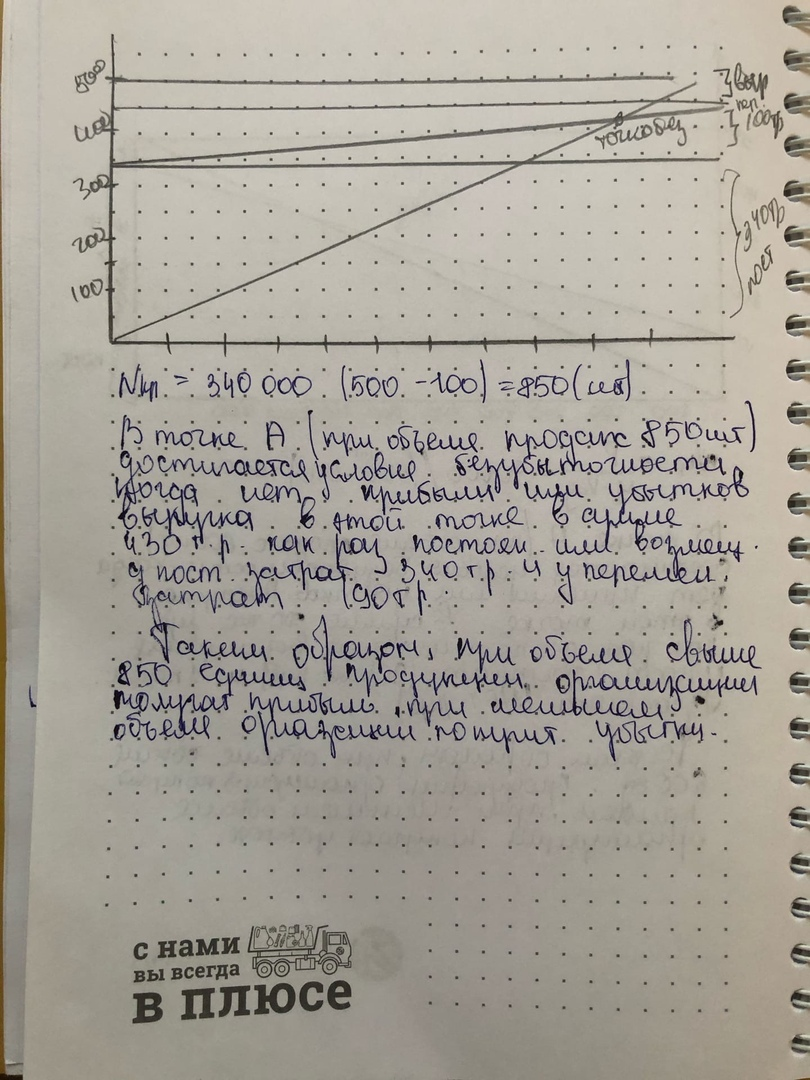 500
выр
пер.
400
100тр
точка без
300
340тр
200
пост
100
Nкр = 340 000 (500 - 100) = 850 (шт)
В точке А (при объеме продаж 850 шт)
достигается условие безубыточности,
когда нет прибыли или убытков
выручка в этой точке в сумме
430 т.р. как раз постоян. или возмещ.
пост затрат 340 т.р. и у перемен.
затрат 190 т.р.
Таким образом, при объеме свыше
850 единиц продукции организация
получат прибыль, при меньшем
объеме потрит убытки.
с нами
вы всегда
в плюсе